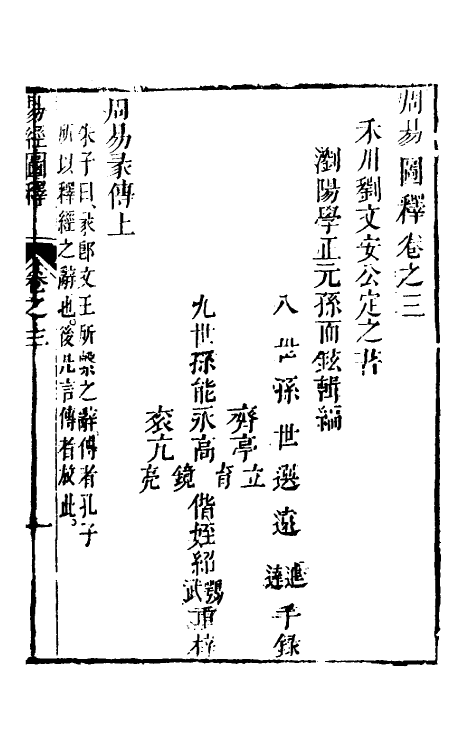 周易圖釋卷之三
禾川劉文安公定之著
瀏陽學正元孫而鉉輯編
八世孫世選遠進達手錄
齊亭立
九世孫能永高育鏡偕姪紹鶚武重梓
袞亢亮
周易彖傳上
朱子曰彖即文王所繫之辭傳者孔子
所以釋經之辭也。後凡言傳者放此。
易經圖釋
卷之三